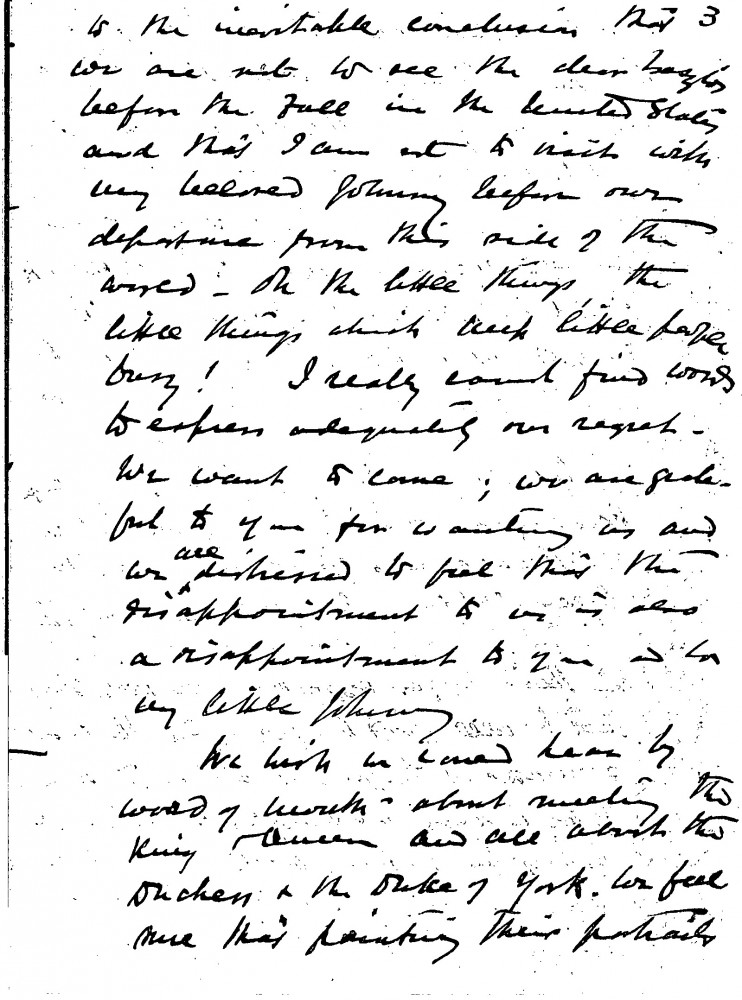 to the inevitable conclusion that 3
we are not to see the dear
before the Fall in the United States
and that I am not to visit with
my beloved Johnny before our
departure from this side of the
world – Oh the little things, the
little things which keep little people
busy! I really cannot find words
to express adequately our regret –
We want to come; we are grate-
ful to you for wanting us and
we are distressed to feel that the
disappointment to us is also
a disappointment to you and to
my little Johnny
We wish we could hear by
word of mouth – about meeting the
King & Queen and all about the
Duchess & the Duke of York. We feel
sure that painting their portraits